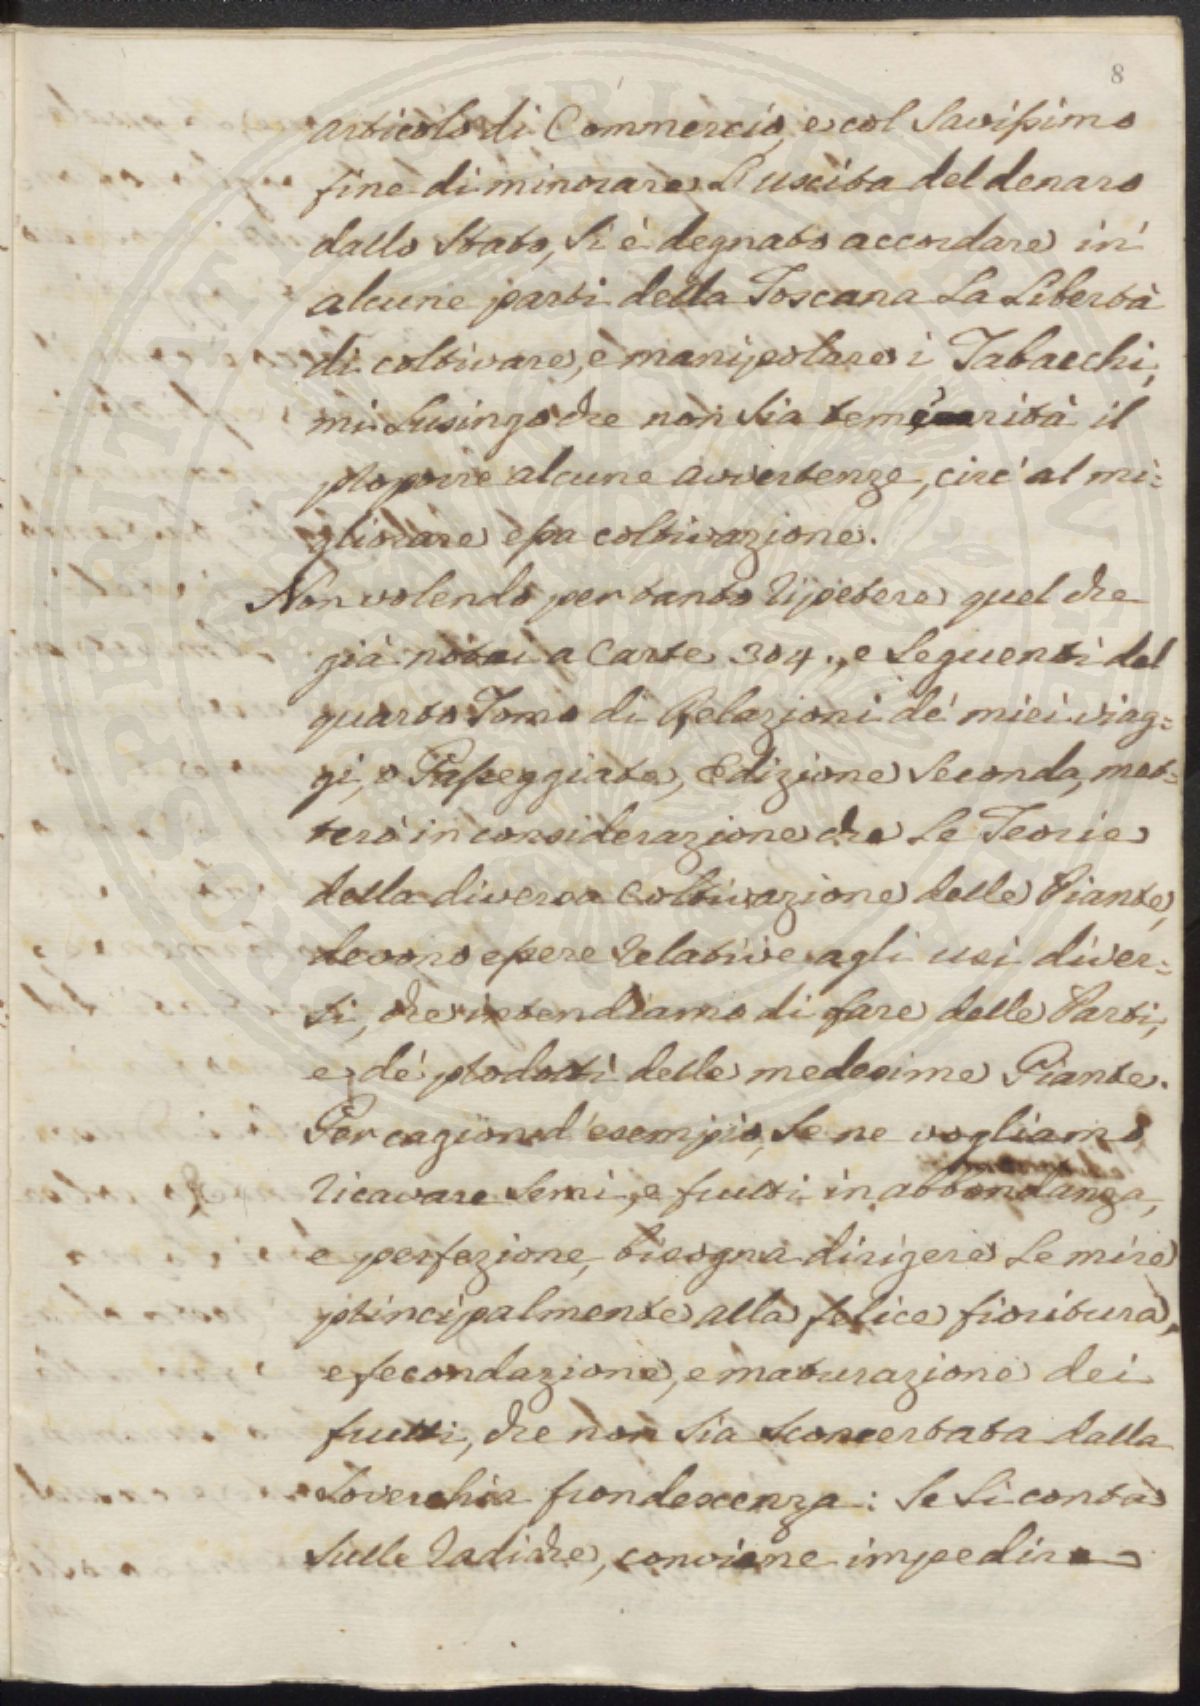 8
articolo di Commercio, e col Savissimo
fine di minorare L'uscita del denaro
dallo Stato, Si è degnato accordare in
alcune parti della Toscana La Libertà
di coltivare, e manipolare i Tabacchi,
mi Lusingo che non Sia temerità il
proporre alcune avvertenze, circ' al mi=
gliorare essa coltivazione.
Non volendo pertanto Ripetere quel che
già notai a Carte 304., e Seguenti del
quarto Tomo di Relazioni de' miei viag=
gi, o Passeggiate, Edizione Seconda, met=
terò in considerazione che Le Teorie
della diversa Coltivazione delle Piante,
devono essere Relative agli usi diver=
si, che intendiamo di fare delle Parti,
e de' prodotti delle medesime Piante.
Per cagion d'esempio, Se ne vogliamo
Ricavare Semi, e frutti in abbondanza,
e perfezione, bisogna dirigere Le mire
principalmente alla felice fioritura,
e fecondazione, e maturazione dei
frutti, che non Sia Sconcertata dalla
Soverchia frondescenza: Se Si conta
Sulle Radiche, conviene impedire